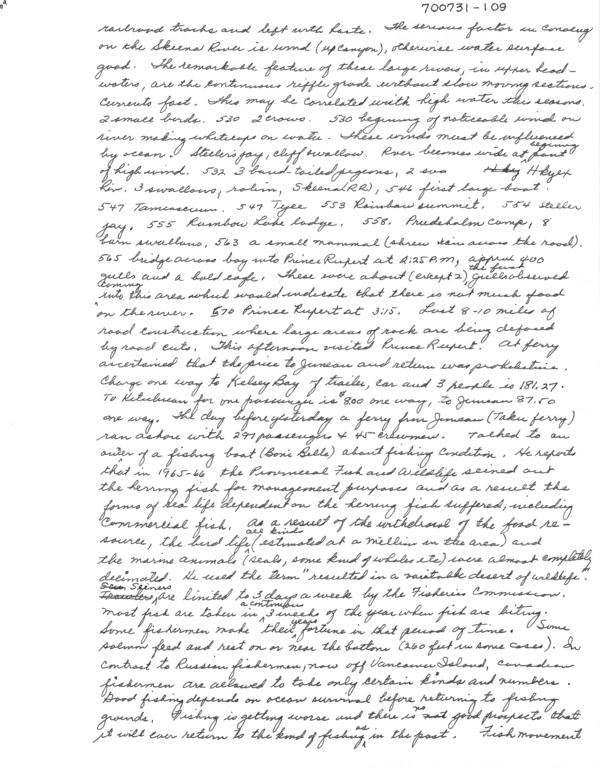 700731-109
railroad tracks and left with haste. The serious factor in canoeing
on the Skeena River is wind (up canyon), otherwise water surface
good. The remarkable feature of these large rivers, in upper head-
waters, are the continuous riffle grade without slow moving sections.
Currents fast. This may be correlated with high water this season.
2 small birds. 530 2 crows. 530 beginning of noticeable wind on
river making whitecaps on water. These winds must be influenced
by ocean. Steller's jay, cliff swallow. River becomes wide at beginning point
of high wind. 532 3 band-tailed pigeons, 2 Hkyex
Riv. 3 swallows, robin, Skeena (RR), 546 first large boat.
547 547 Tyee 553 Rainbow summit. 554 steller
jay. 555 Rainbow Lake lodge. 558. Prudehalm camp, 8
barn swallows, 563 a small mammal (shrew ran across the road).
565 bridge across bay into Prince Rupert at 2:25 P.M, approx 400
gulls and a bald eagle. These were about (except 2), the first gulls observed
coming into this area which would indicate that there is not much food
on the river. 570 Prince Rupert at 3:15. Last 8-10 miles of
road construction where large areas of rock are being defaced
by road cuts. This afternoon visited Prince Rupert. At ferry
ascertained that the price to Juneau and return was prohibitive.
Charge one way to Kelsey Bay of trailer, car and 3 people is 181.27.
To Ketchikan for one passenger is $800 one way, to Juneau 27.50
one way. The day before yesterday a ferry from Juneau (Taku ferry)
ran ashore with 297 passengers & 45 crewmen. Talked to an
owner of a fishing boat (Boni Belle) about fishing condition. He reports
that in 1965-66 the Provincial Fish and Wildlife seined out
the herring fish for management purposes and as a result the
forms of sea life dependent on the herring fish suffered, including
commercial fish. As a result of the withdrawal of the food re-
source, the bird life all kinds (estimated at a million in the area) and
the marine animals (seals, some kind of whales etc) were almost completely
decimated. He used the term "resulted in a veritable desert of wildlife."
Seiners are limited to 3 days a week by the Fisheries Commission.
Most fish are taken in a continuous 3 weeks of the year when fish are biting.
Some fishermen make their years fortune in that period of time. Some
salmon feed and rest on or near the bottom (260 feet in some cases). In
contrast to Russian fishermen, now off Vancouver Island, canadian
fishermen are allowed to take only certain kinds and numbers.
Good fishing depends on ocean survival before returning to fishing
grounds. Fishing is getting worse and there is no good prospects that
it will ever return to the kind of fishing as in the past. Fish movement